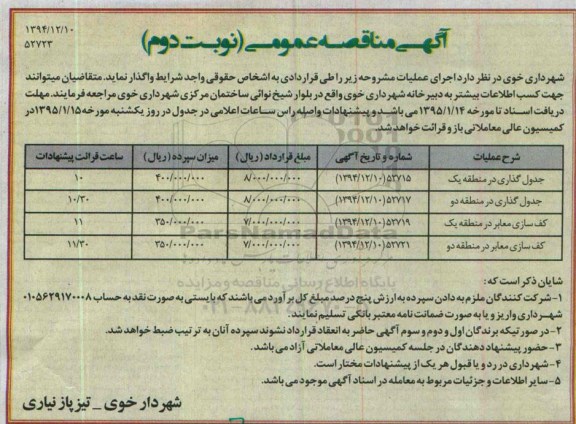 ۱۳۹۴/۱۲/۱۰
۵۲۷۲۳
آگهی مناقصه عمومی (نوبت دوم)
شهرداری خوی در نظر دارد اجرای عملیات مشروحه زیر را طی قراردادی به اشخاص حقوقی واجد شرایط واگذار نماید. متقاضیان میتوانند
جهت کسب اطلاعات بیشتر به دبیرخانه شهرداری خوی واقع در بلوار شیخ نوائی ساختمان مرکزی شهرداری خوی مراجعه فرمایند. مهلت
دریافت اسناد تا مورخه ۱۳۹۵/۱/۱۴ می باشد و پیشنهادات واصله راس ساعات اعلامی در جدول در روز یکشنبه مورخه ۱۳۹۵/۱/۱۵ در
کمیسیون عالی معاملاتی باز و قرائت خواهد شد.
شرح عملیات شماره و تاریخ آگهی مبلغ قرارداد (ریال) میزان سپرده (ریال) ساعت قرائت پیشنهادات
جدول گذاری در منطقه یک ۵۲۷۱۵(۱۳۹۴/۱۲/۱۰) ۸/۰۰۰/۰۰۰/۰۰۰ ۴۰۰/۰۰۰/۰۰۰ ۱۰
جدول گذاری در منطقه دو ۵۲۷۱۷(۱۳۹۴/۱۲/۱۰) ۸/۰۰۰/۰۰۰/۰۰۰ ۴۰۰/۰۰۰/۰۰۰ ۱۰/۳۰
کف سازی معابر در منطقه یک ۵۲۷۱۹(۱۳۹۴/۱۲/۱۰) ۷/۰۰۰/۰۰۰/۰۰۰ ۳۵۰/۰۰۰/۰۰۰ ۱۱
کف سازی معابر در منطقه دو ۵۲۷۲۱(۱۳۹۴/۱۲/۱۰) ۷/۰۰۰/۰۰۰/۰۰۰ ۳۵۰/۰۰۰/۰۰۰ ۱۱/۳۰
ParsNamadData
پایگاه اطلاع رسانی مناقصه و مزایده
شایان ذکر است که:
۱- شرکت کنندگان ملزم به دادن سپرده به ارزش پنج درصد مبلغ کل برآورد می باشند که بایستی به صورت نقد به حساب ۰۱۰۵۶۲۹۱۷۰۰۰۸
شهرداری واریز و یا به صورت ضمانت نامه معتبر بانکی تسلیم نمایند.
۲- در صورتیکه برندگان اول و دوم و سوم آگهی حاضر به انعقاد قرارداد نشوند سپرده آنان به ترتیب ضبط خواهد شد.
۳- حضور پیشنهاد دهندگان در جلسه کمیسیون عالی معاملاتی آزاد می باشد.
۴- شهرداری در رد و یا قبول هر یک از پیشنهادات مختار است.
۵- سایر اطلاعات و جزئیات مربوط به معامله در اسناد آگهی موجود می باشد.
شهردار خوی _ تیز پاز نیاری